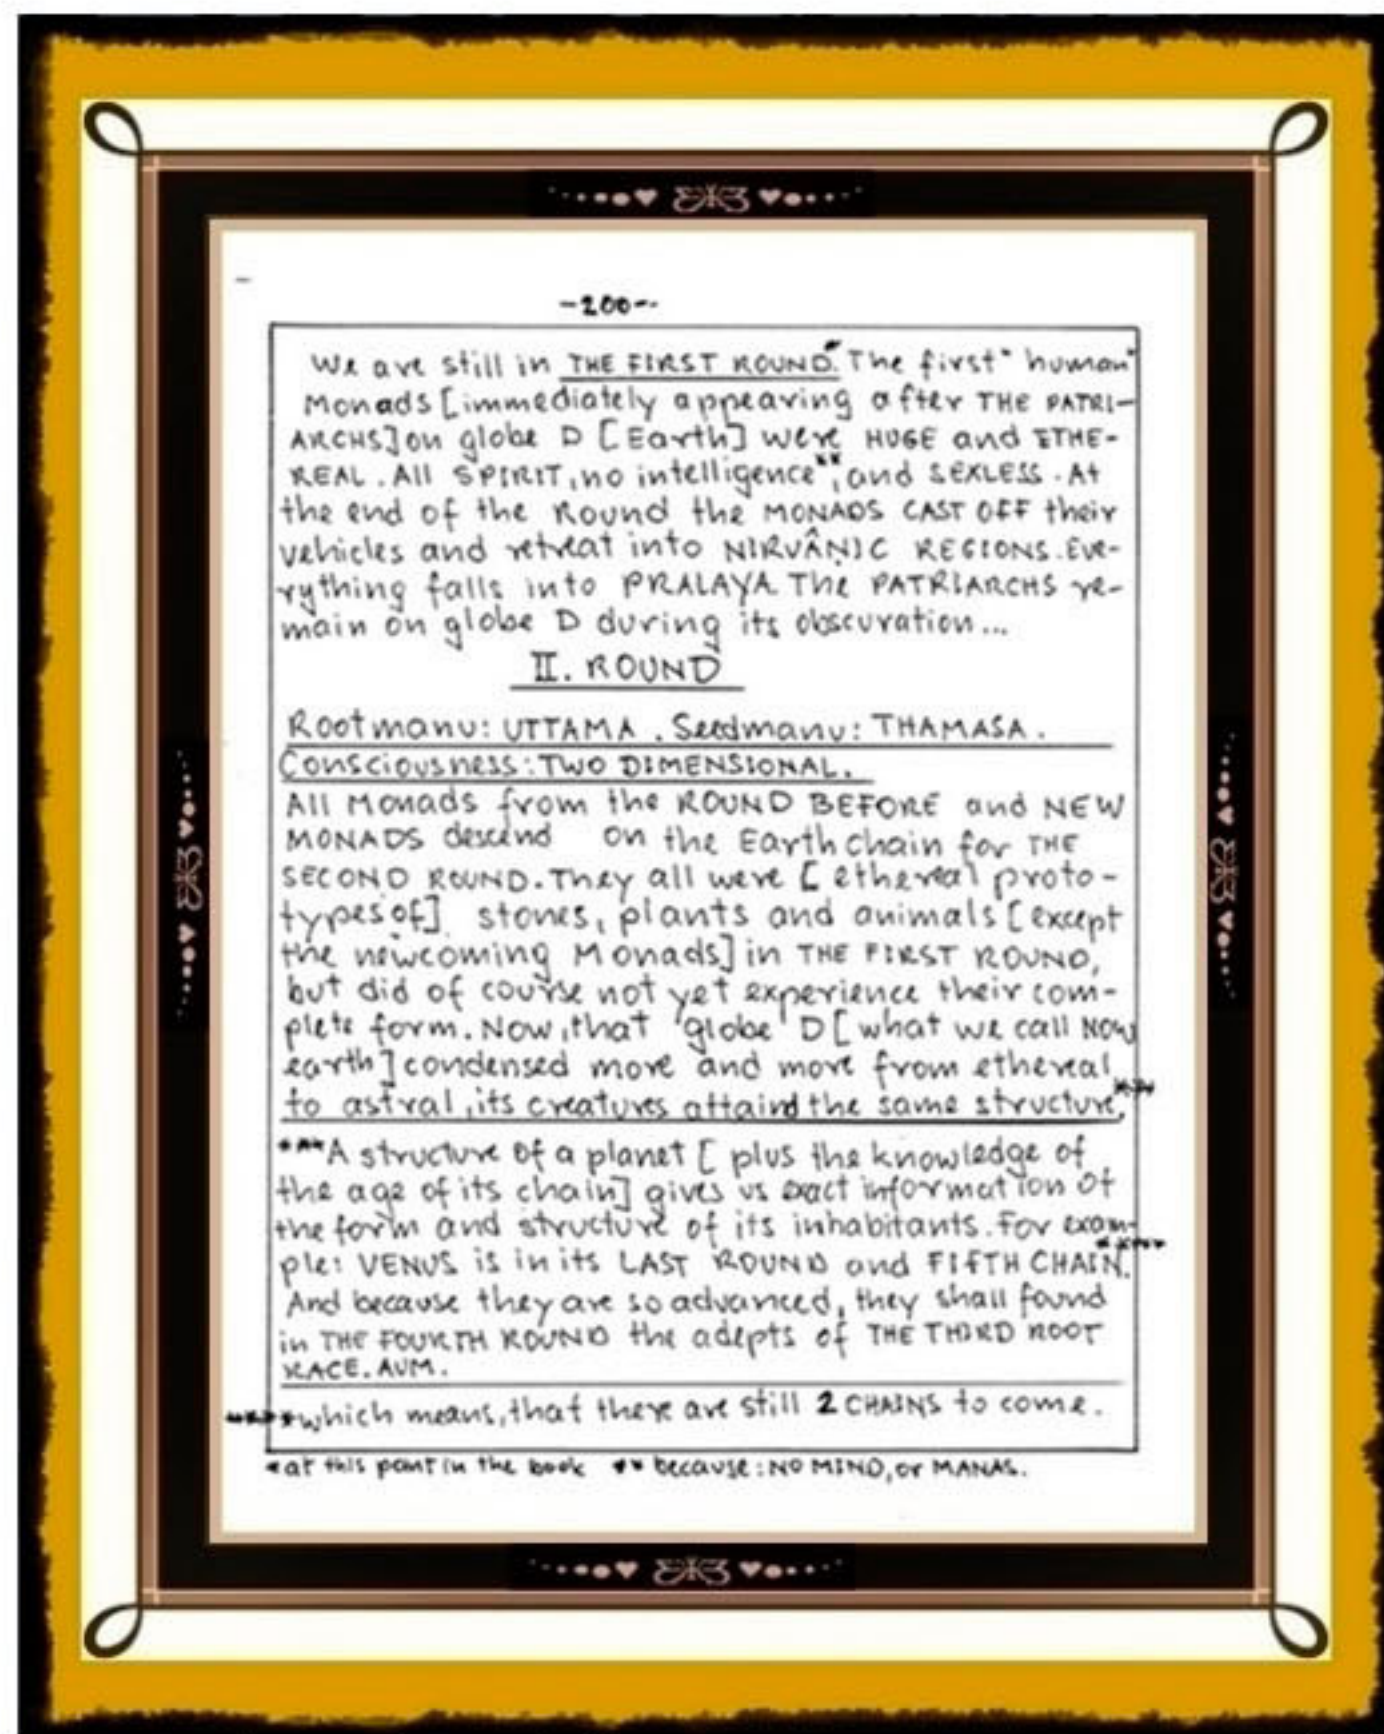 -200--
We are still in THE FIRST ROUND.* The first "human"
Monads [immediately appearing after THE PATRI-
ARCHS] on globe D [Earth] were HUGE and ETHE-
REAL. All SPIRIT, no intelligence**, and SEXLESS. At
the end of the Round the MONADS CAST OFF their
vehicles and retreat into NIRVÂNIC REGIONS. Eve-
rything falls into PRALAYA. The PATRIARCHS re-
main on globe D during its obscuration...
II. ROUND
Rootmanu: UTTAMA. Seedmanu: THAMASA.
Consciousness: TWO DIMENSIONAL.
All Monads from the ROUND BEFORE and NEW
MONADS descend on the Earth chain for THE
SECOND ROUND. They all were [ethereal proto-
types of] stones, plants and animals [except
the newcoming Monads] in THE FIRST ROUND,
but did of course not yet experience their com-
plete form. Now, that 'globe' D [what we call NOW
earth] condensed more and more from ethereal
to astral, its creatures attaind the same structure,***
***A structure of a planet [plus the knowledge of
the age of its chain] gives us exact information of
the form and structure of its inhabitants. For exam-
ple: VENUS is in its LAST ROUND and FIFTH CHAIN.****
And because they are so advanced, they shall found
in THE FOURTH ROUND the adepts of THE THIRD ROOT
RACE. AUM.
****which means, that there are still 2 CHAINS to come.
*at this point in the book ** because: NO MIND, or MANAS.